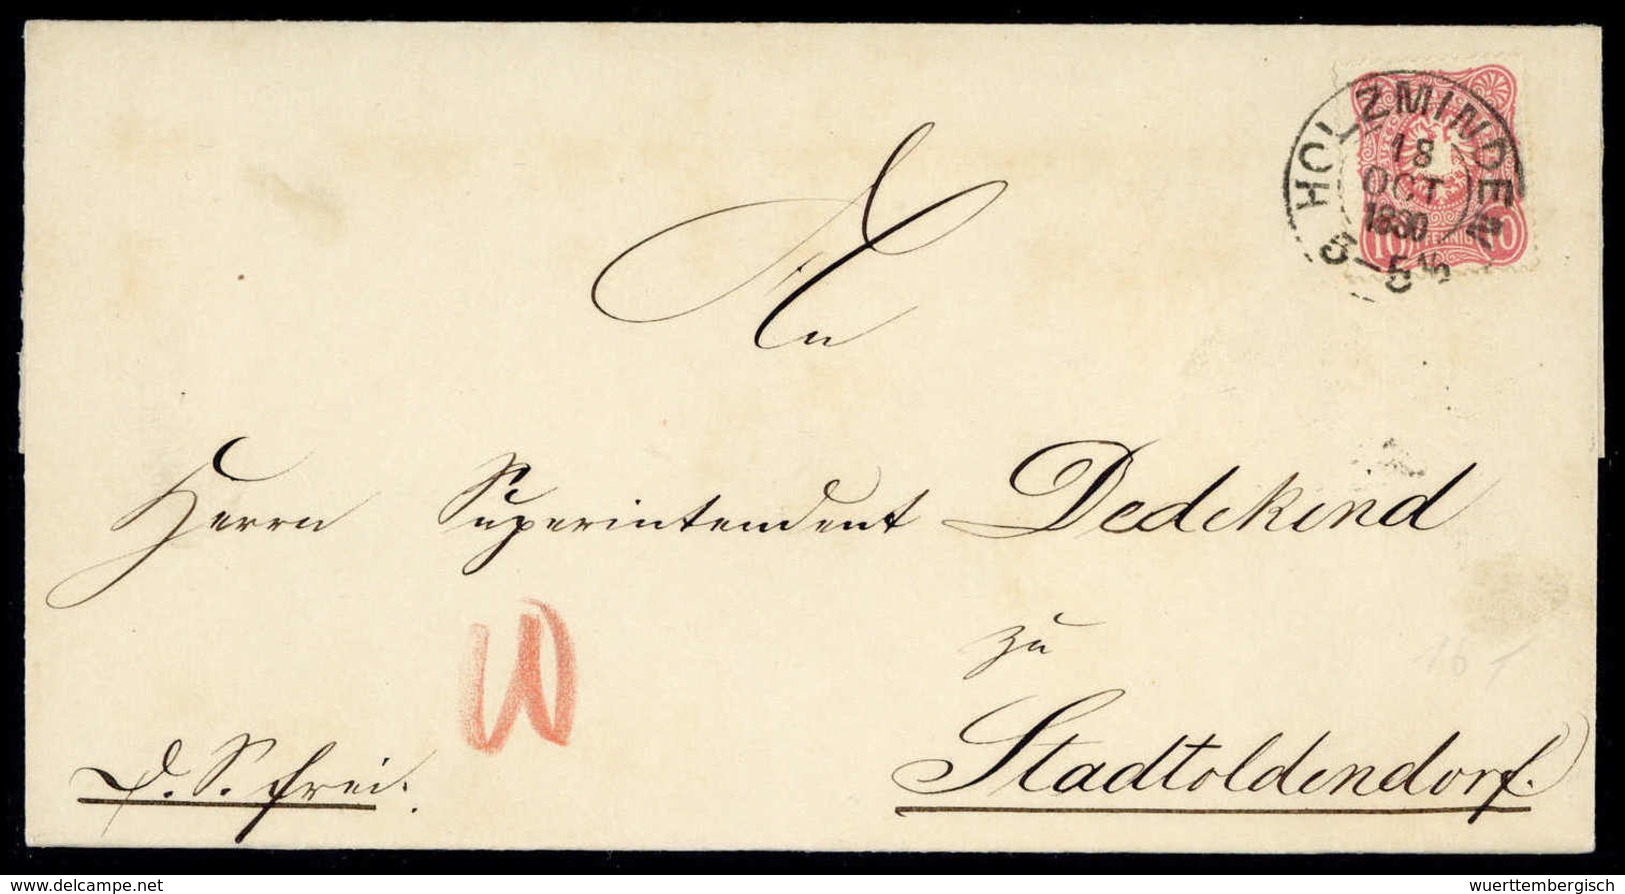 HOLZMINDEN
18
OCT
1880
5-5 N
10 PFENNIG 10
An
Herrn Superintendent Dedekind
zu
Stadtoldendorf.
d. S. frei.
delcampe.net
wuerttembergisch